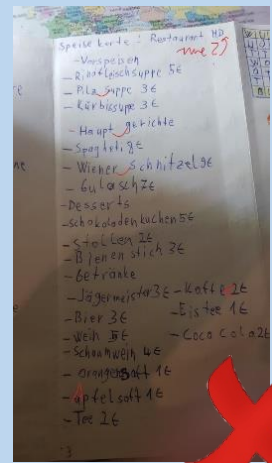 Speise karte: Restaurant MD
- Vorspeisen
- Rindfleischsuppe 5€
- Pilz suppe 3€
- Kürbissuppe 3€
- Haupt gerichte
- Spaghetti 8€
- Wiener Schnitzel 9€
- Gulasch 7€
- Desserts
- Schokoladenkuchen 5€
- Stollen 2€
- Bienenstich 3€
- Getränke
- Jägermeister 3€ - Kaffe 2€
- Bier 3€ - Eistee 1€
- Wein 5€ - Coca Cola 2€
- Schaumwein 4€
- Orangensaft 1€
- Apfelsaft 1€
- Tee 2€